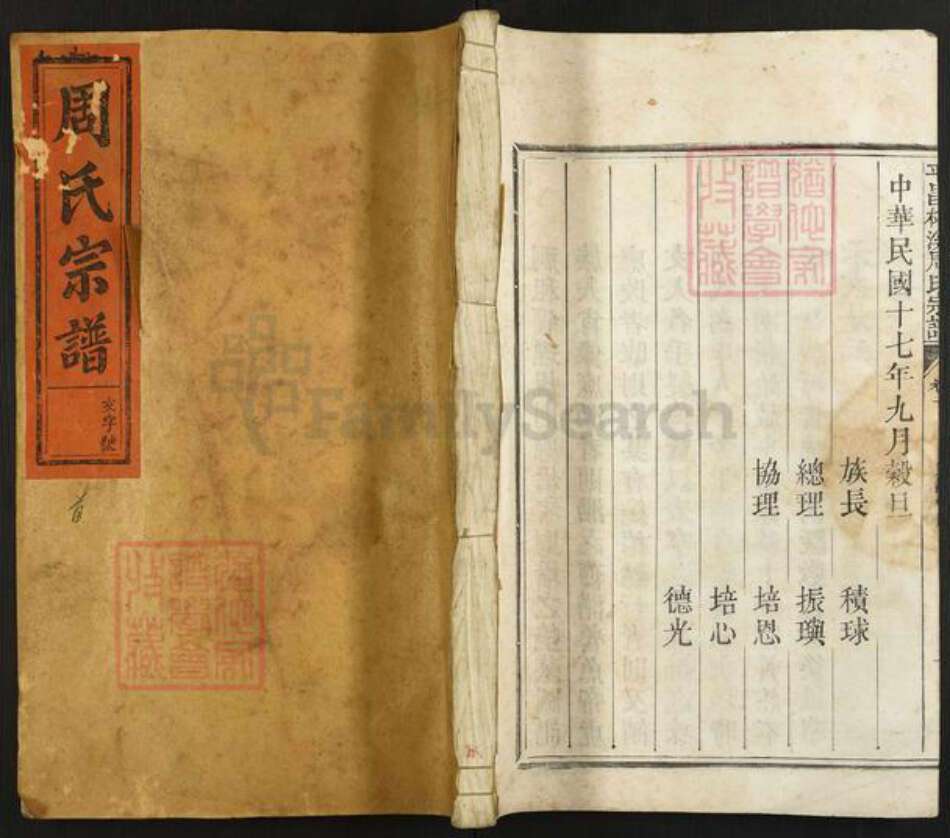 周氏宗譜
文字號
首
中華民國十七年九月穀旦
族長 積球
總理 振璵
協理 培恩
培心
德光
周氏宗譜
譜學會
收藏
譜學會
收藏
FamilySearch